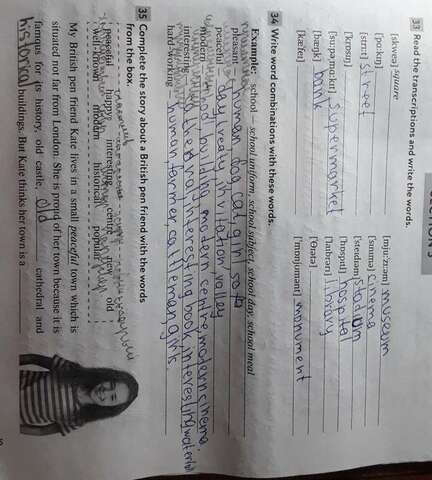 33 Read the transcriptions and write the words.
[skweə] square
[ˈpɑ:kɪŋ]
[stri:t] street
[ˈkrɒsɪŋ]
[ˈsu:pəˌmɑ:kɪt] supermarket
[bæŋk] bank
[ˈkæfeɪ]
[mju:ˈzɪəm] museum
[ˈsɪnəmə] cinema
[ˈsteɪdiəm] stadium
[ˈhɒspɪtl] hospital
[ˈlaɪbrəri] library
[ˈθɪətə]
[ˈmɒnjʊmənt] monument
34 Write word combinations with these words.
Example: school — school uniform, school subject, school day, school meal
pleasant human, dog, cat, girl, sofa
peaceful day, treaty, invitation, valley
modern building, modern centre, modern cinema,
interesting book, interesting
hard-working human, farmer, cattleman, girls
35 Complete the story about a British pen friend with the words
from the box.
peaceful happy interesting centre new old
well-known modern historical popular
My British pen friend Kate lives in a small peaceful town which is
situated not far from London. She is proud of her town because it is
famous for its history, old castle, old cathedral and
historical buildings. But Kate thinks her town is a